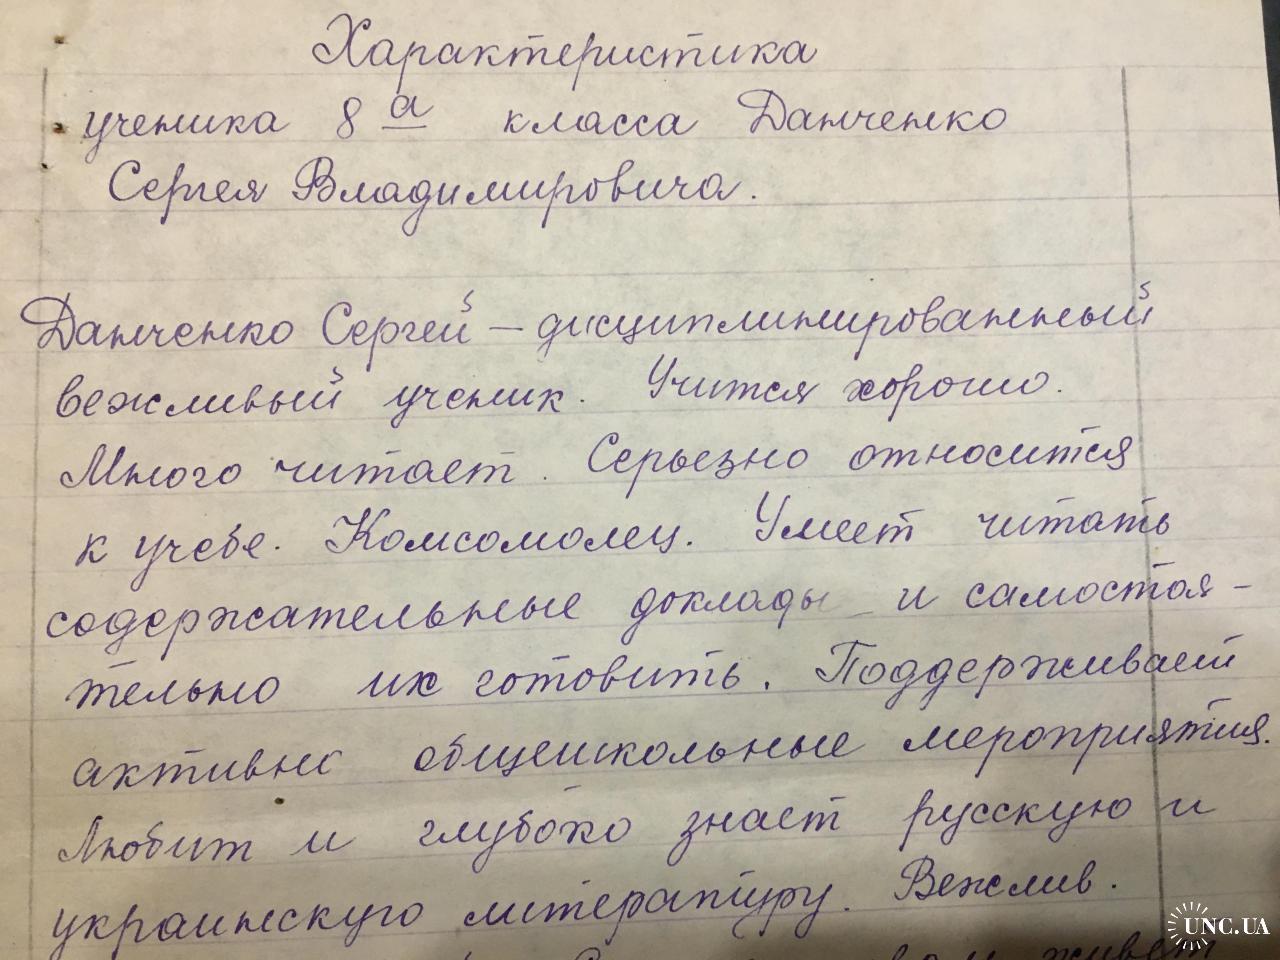 Характеристика
ученика 8 а класса Данченко
Сергея Владимировича.
Данченко Сергей – дисциплинированный
вежливый ученик. Учится хорошо.
Много читает. Серьезно относится
к учебе. Комсомолец. Умеет читать
содержательные доклады и самостоя-
тельно их готовить. Поддерживает
активно общешкольные мероприятия.
Любит и глубоко знает русскую и
украинскую литературу. Вежлив.
живет
UNC.UA